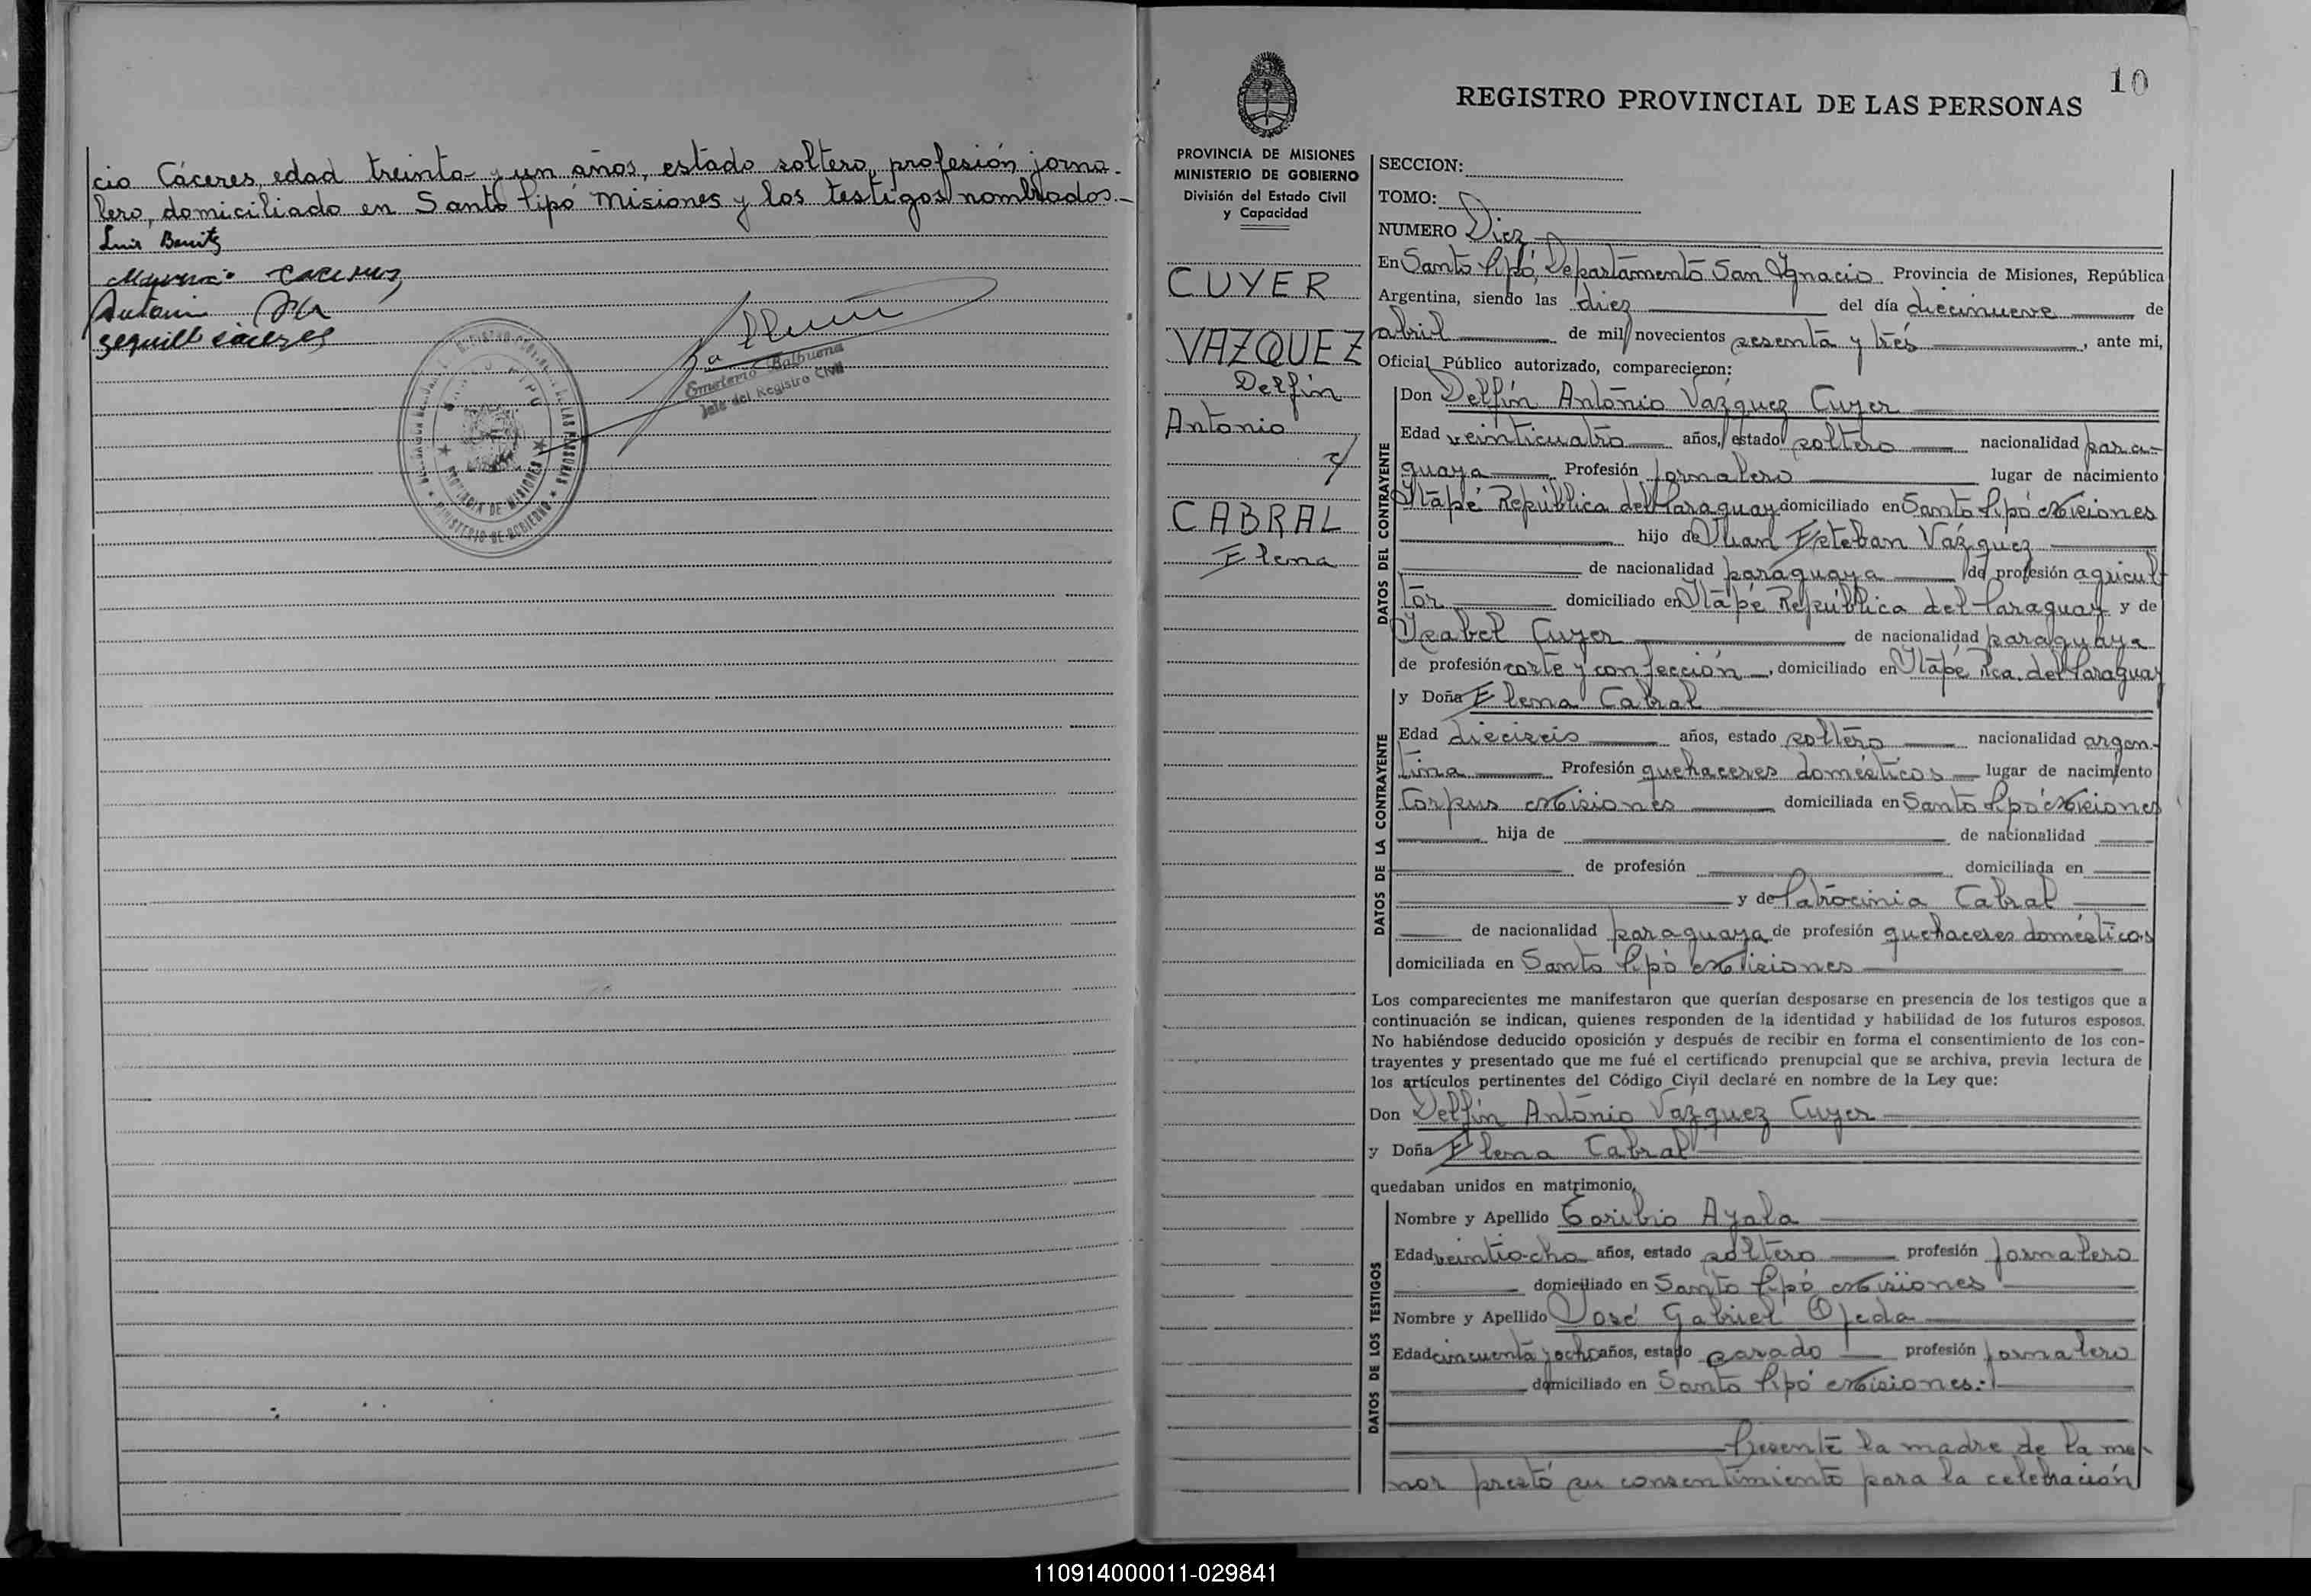 cio Cáceres, edad treinta y un años, estado soltero, profesión, jorna-
lero, domiciliado en Santo Pipó Misiones y los testigos nombrados.-
Luis Benitz
Caceres
Antonio
Emeterio Balbuena
Jefe del Registro Civil
PROVINCIA DE MISIONES
MINISTERIO DE GOBIERNO
10
REGISTRO PROVINCIAL DE LAS PERSONAS
PROVINCIA DE MISIONES
MINISTERIO DE GOBIERNO
División del Estado Civil
y Capacidad
CUYER
VAZQUEZ
Delfín
Antonio
y
CABRAL
Elena
SECCION:
TOMO:
NUMERO Diez
En Santo Pipó, Departamento San Ignacio Provincia de Misiones, República
Argentina, siendo las diez del día diecinueve de
abril de mil novecientos sesenta y trés, ante mi,
Oficial Público autorizado, comparecieron:
DATOS DEL CONTRAYENTE
Don Delfín Antonio Vazquez Cuyer
Edad veinticuatro años, estado soltero nacionalidad para-
guaya Profesión jornalero lugar de nacimiento
Itapé República del Paraguay domiciliado en Santo Pipó Misiones
hijo de Juan Esteban Vázquez
de nacionalidad paraguaya de profesión agricul-
tor domiciliado en Itapé República del Paraguay y de
Isabel Cuyer de nacionalidad paraguaya
de profesión corte y confección, domiciliado en Itapé Rca. del Paraguay
DATOS DE LA CONTRAYENTE
y Doña Elena Cabral
Edad dieciseis años, estado soltero nacionalidad argen-
tina Profesión quehaceres domésticos lugar de nacimiento
Corpus Misiones domiciliada en Santo Pipó Misiones
hija de de nacionalidad
de profesión domiciliada en
y de Patrocinia Cabral
de nacionalidad paraguaya de profesión quehaceres domésticos
domiciliada en Santo Pipó Misiones
Los comparecientes me manifestaron que querían desposarse en presencia de los testigos que a
continuación se indican, quienes responden de la identidad y habilidad de los futuros esposos.
No habiéndose deducido oposición y después de recibir en forma el consentimiento de los con-
trayentes y presentado que me fué el certificado prenupcial que se archiva, previa lectura de
los artículos pertinentes del Código Civil declaré en nombre de la Ley que:
Don Delfín Antonio Vazquez Cuyer
y Doña Elena Cabral
quedaban unidos en matrimonio,
DATOS DE LOS TESTIGOS
Nombre y Apellido Toribio Ayala
Edad veintiocho años, estado soltero profesión jornalero
domiciliado en Santo Pipó Misiones
Nombre y Apellido José Gabriel Ojeda
Edad cincuenta y ocho años, estado casado profesión jornalero
domiciliado en Santo Pipó Misiones.-
Presente la madre de la me-
nor prestó su consentimiento para la celebración
110914000011-029841